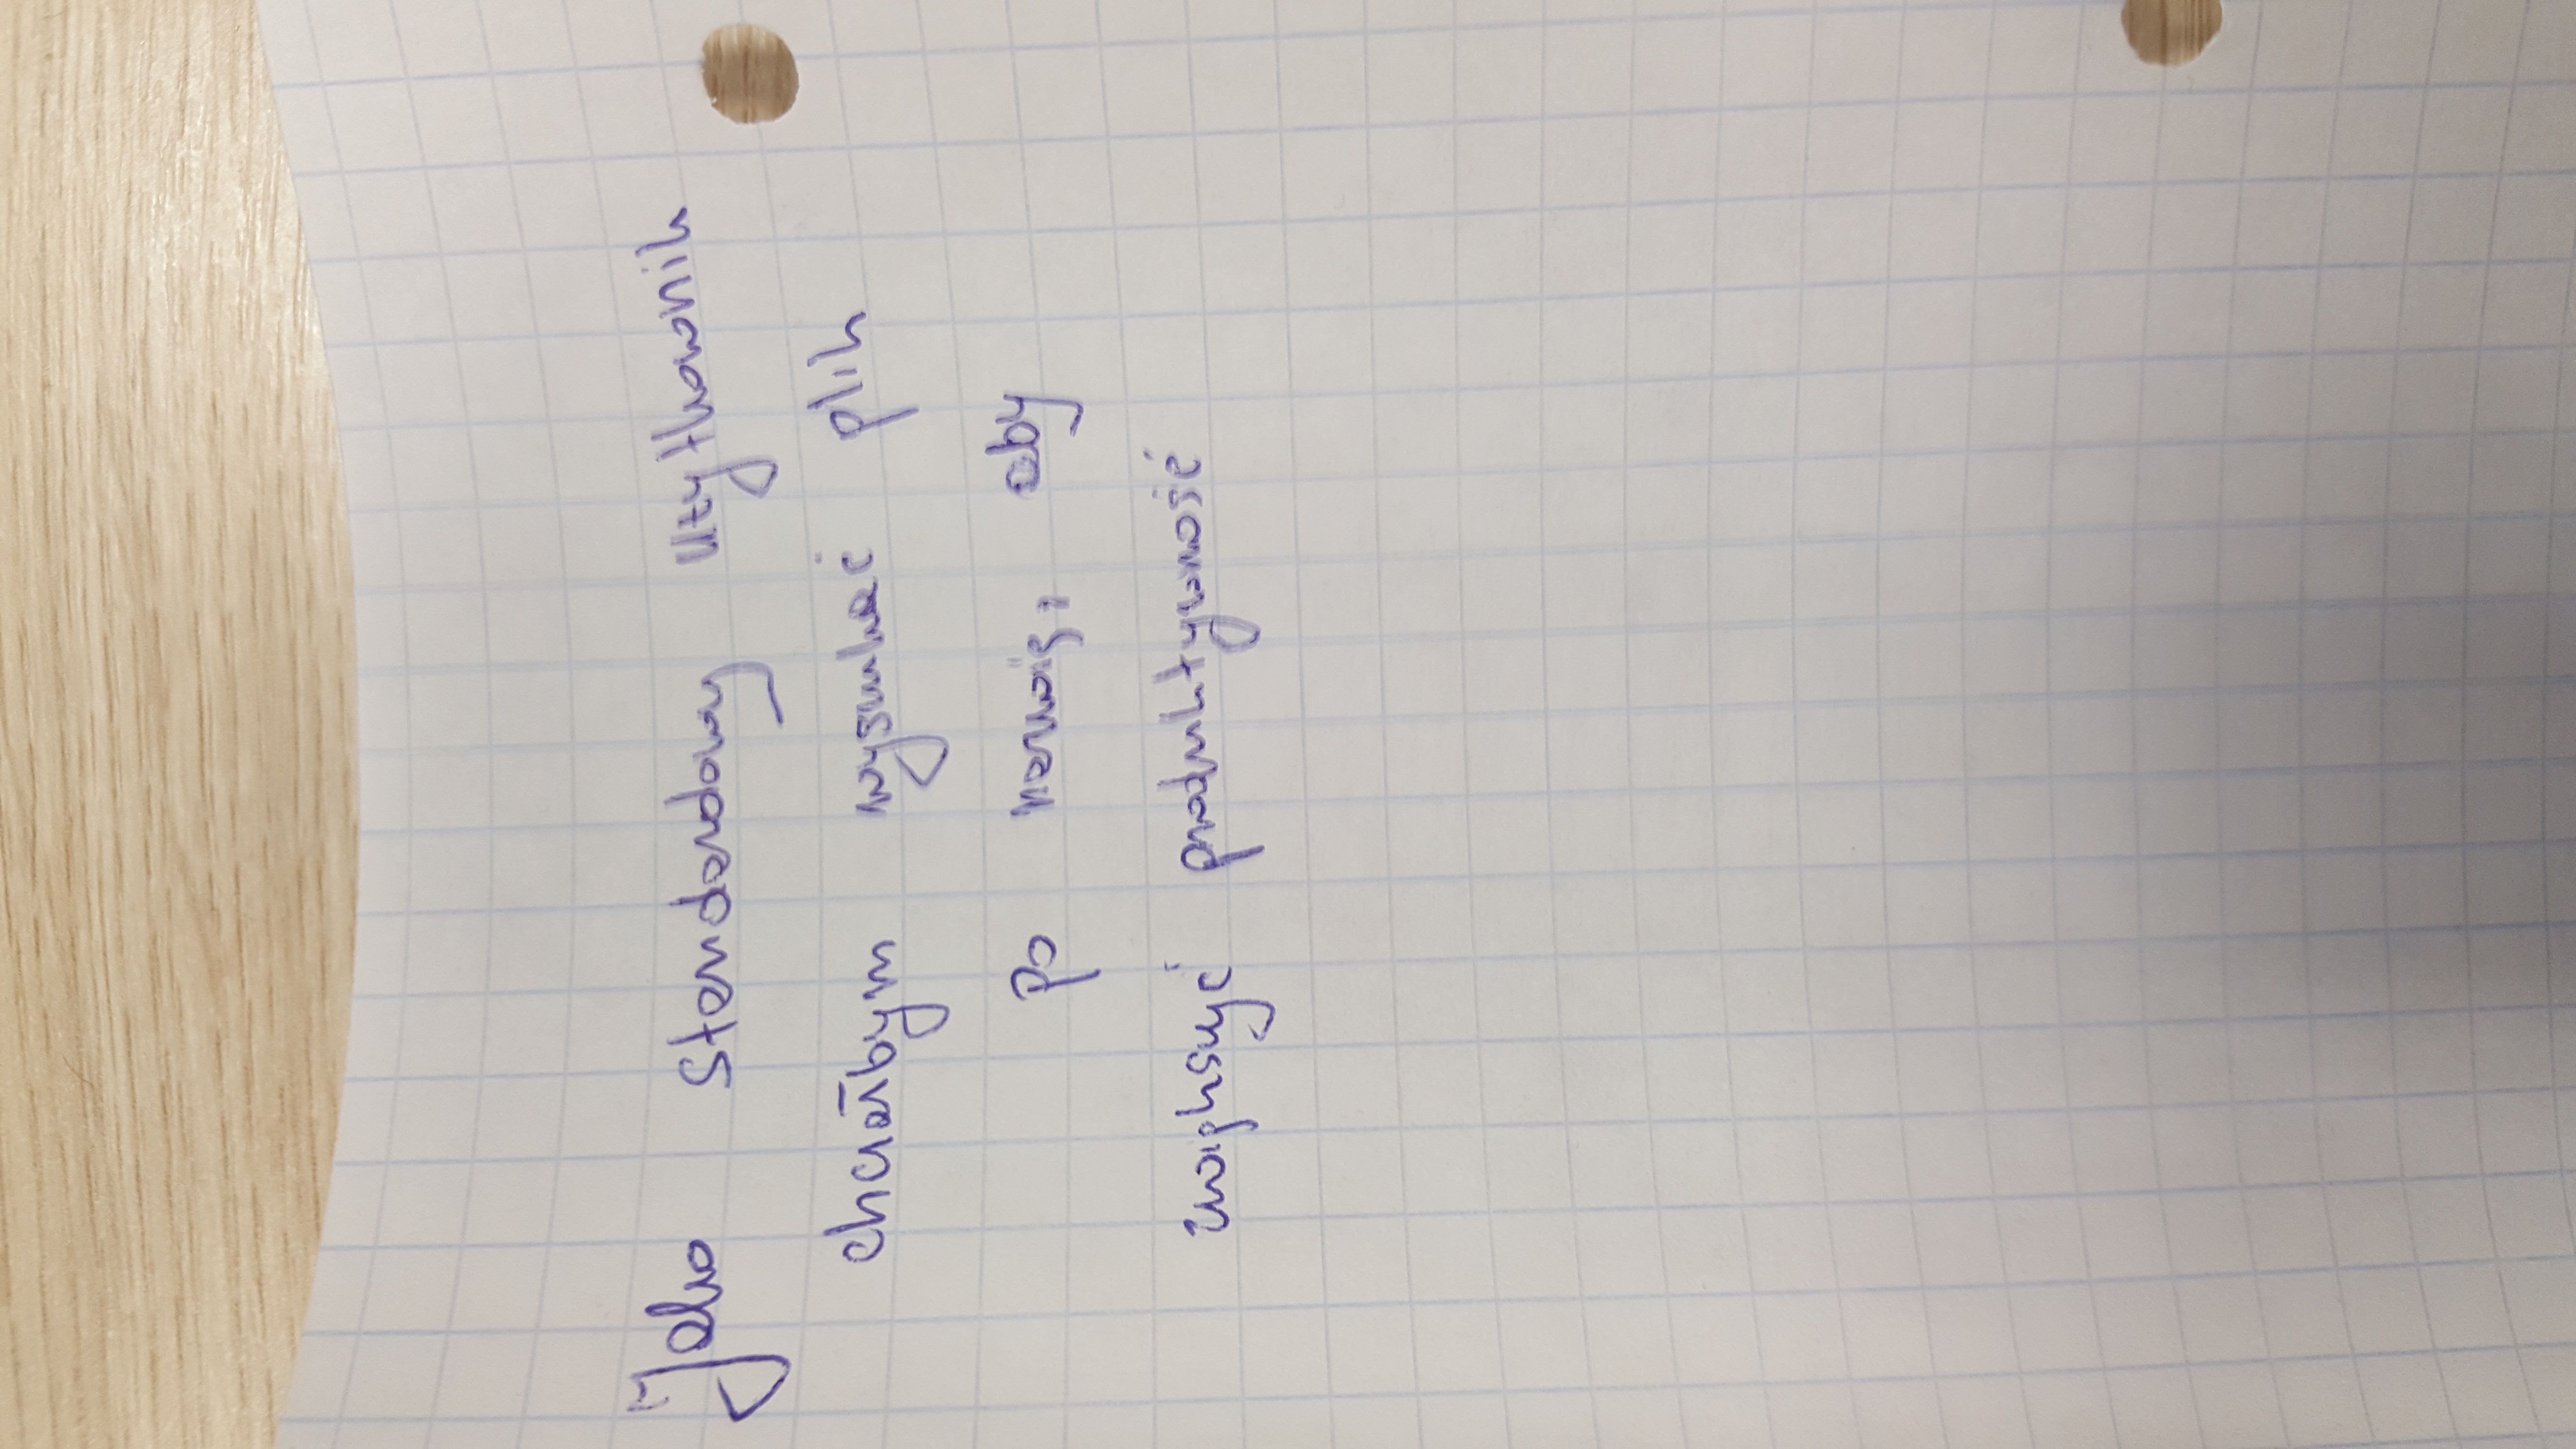 Jako standardowy użytkownik
chciałbym wyszukać plik
po nazwię, aby
zwiększyć produktywność